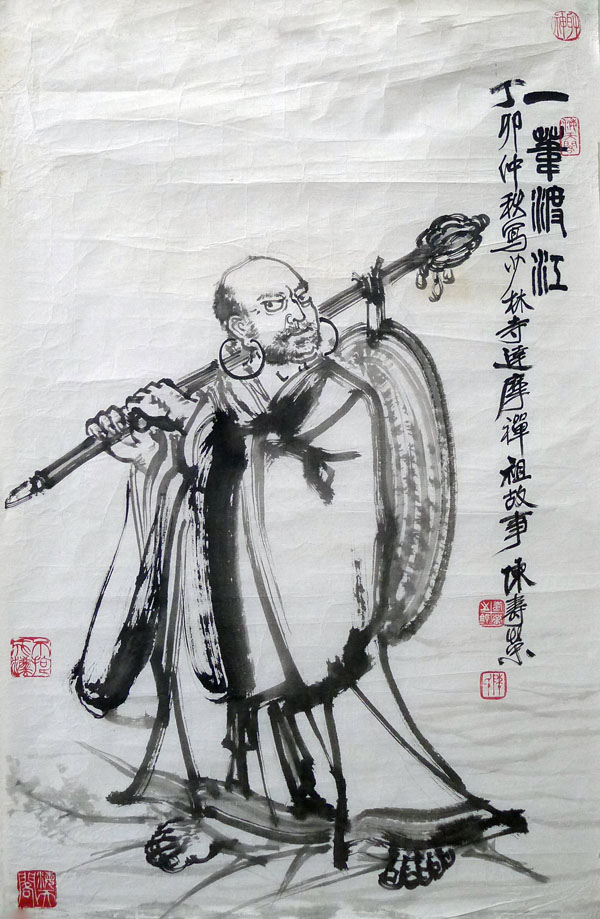 一葦渡江
丁卯仲秋寫少林寺達摩禪祖故事 陳壽榮